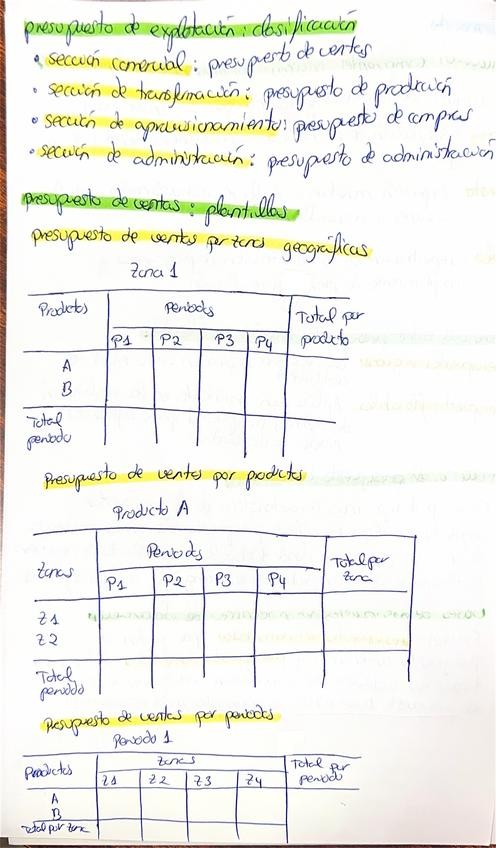 presupuesto de explotación: clasificación
• sección comercial: presupuesto de ventas
• sección de transformación: presupuesto de producción
• sección de aprovisionamiento: presupuesto de compras
• sección de administración: presupuesto de administración
presupuesto de ventas: plantillas
presupuesto de ventas por zonas geográficas
Zona 1
Productos Periodos Total por producto
P1 P2 P3 P4
A
B
Total periodo
Presupuesto de ventas por productos
Producto A
Zonas Periodos Total por zona
P1 P2 P3 P4
Z1
Z2
Total periodo
Presupuesto de ventas por periodos
Periodo 1
Productos Zonas Total por periodo
Z1 Z2 Z3 Z4
A
B
Total por zona